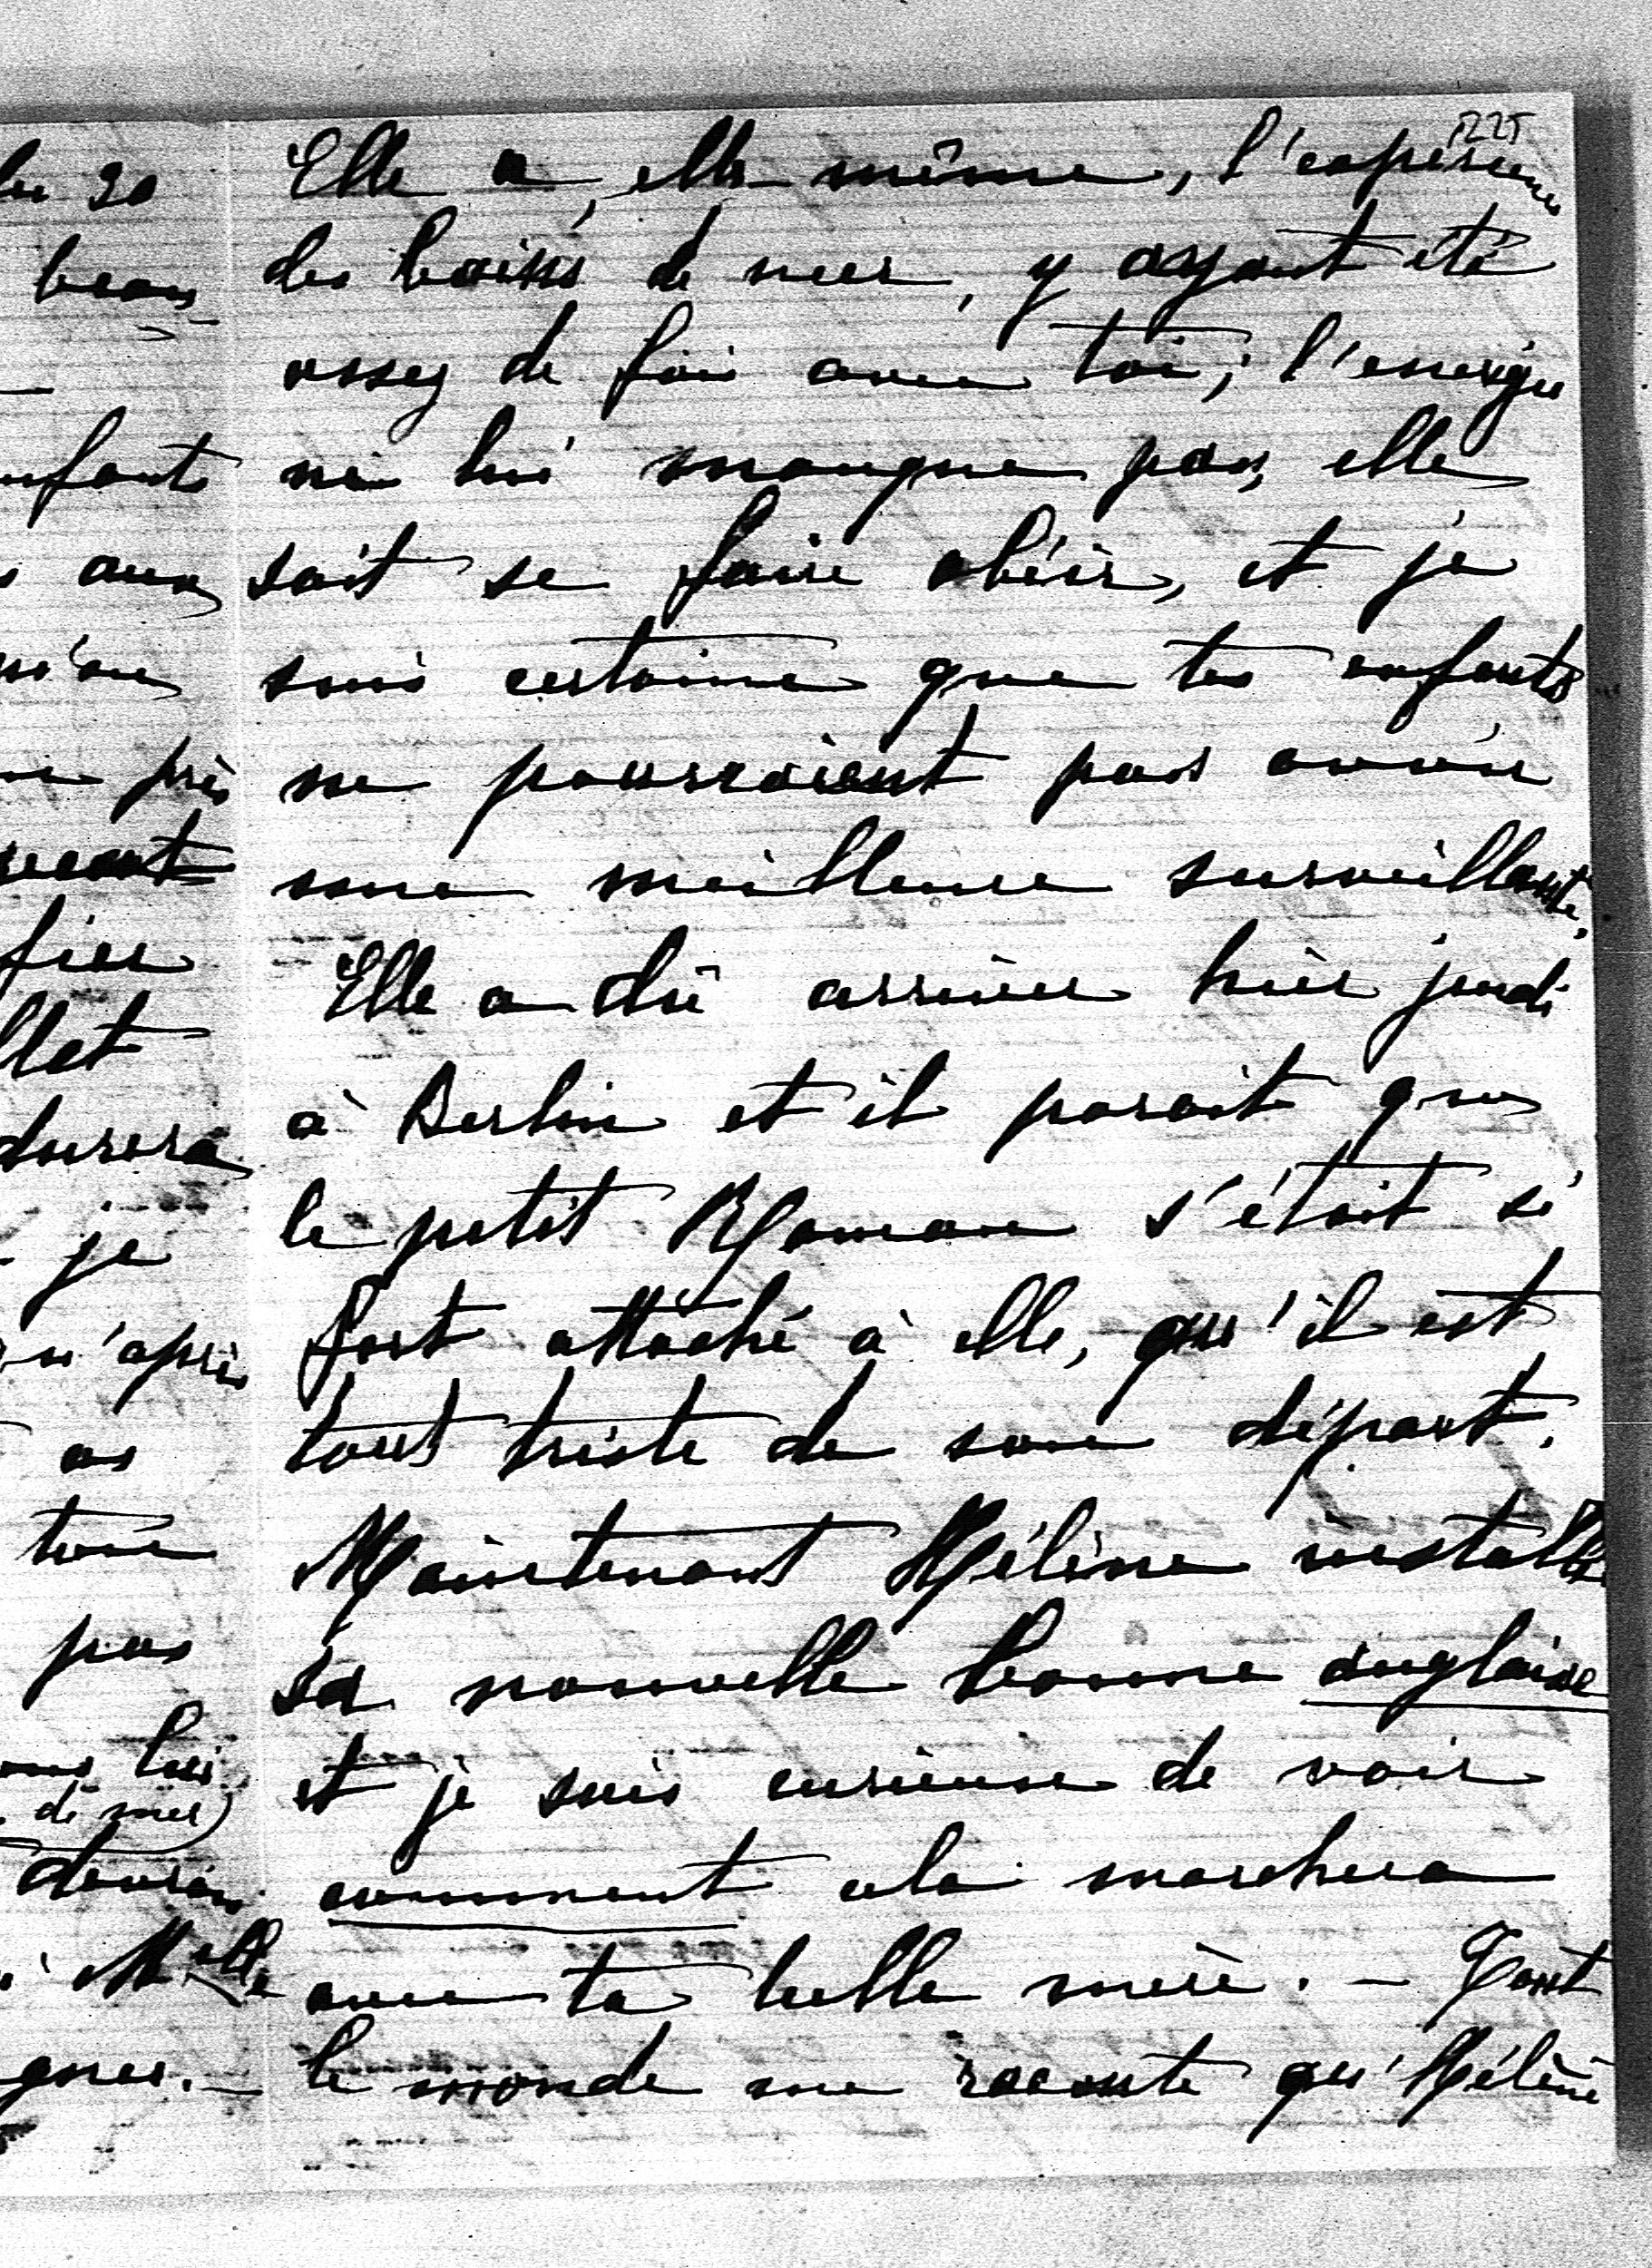 1225
Elle a, elle même, l'expérience
des bains de mer, y ayant été
assez de fois avec toi; l'énergie
ne lui manque pas, elle
sait se faire obéir, et je
suis certaine que tes enfants
ne pourraient pas avoir
une meilleure surveillante.
Elle a dû arriver hier jeudi
à Berlin et il parait que
le petit Roman s'était si
fort attaché à elle, qu'il est
tout triste de son départ.
Maintenant Hélène installe
sa nouvelle bonne anglaise
et je suis curieuse de voir
comment cela marchera
avec ta belle mère. – Tout
le monde me raconte qu'Hélène
20
beau
nfants
aux
près
fier
llet
durera
je
qu'après
as
pas
lui
de mer)
Melle
gner. –